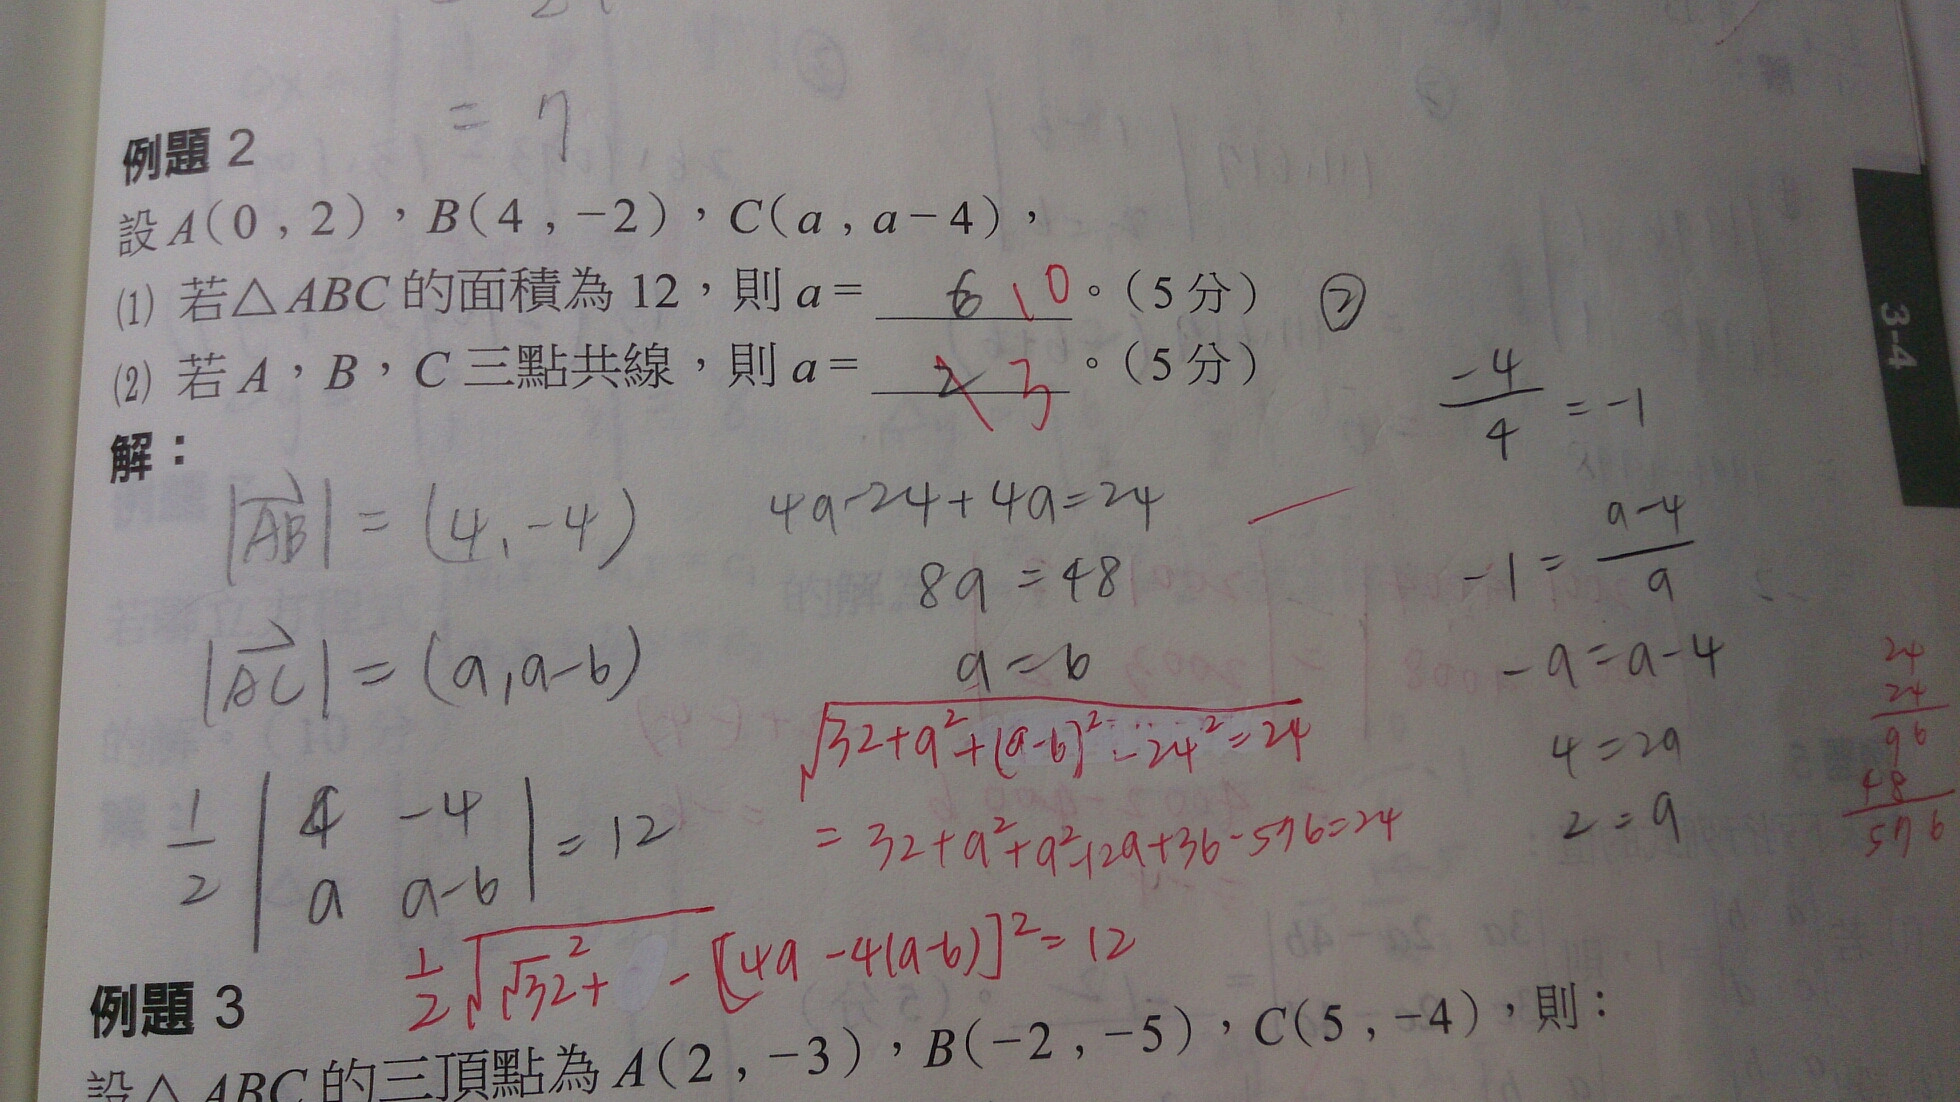 = 7
例題 2
設 A(0 , 2),B(4 , −2),C(a , a−4),
⑴ 若△ABC 的面積為 12,則 a= 6 10 。(5 分) ②
⑵ 若 A,B,C 三點共線,則 a= 2 3 。(5 分)
解:
|AB| = (4, -4)
|AC| = (a, a-6)
1/2 | 4 -4 | = 12
| a a-6 |
4a-24+4a=24
8a = 48
a = 6
√32+a²+(a-6)²-24² = 24
= 32+a²+a²-12a+36-576=24
1/2 √√32²+ - [4a-4(a-6)]² = 12
-4/4 = -1
-1 = a-4/a
-a = a-4
4 = 2a
2 = a
24
24
96
48
576
3-4
例題 3
設△ABC 的三頂點為 A(2 , −3),B(−2 , −5),C(5 , −4),則: